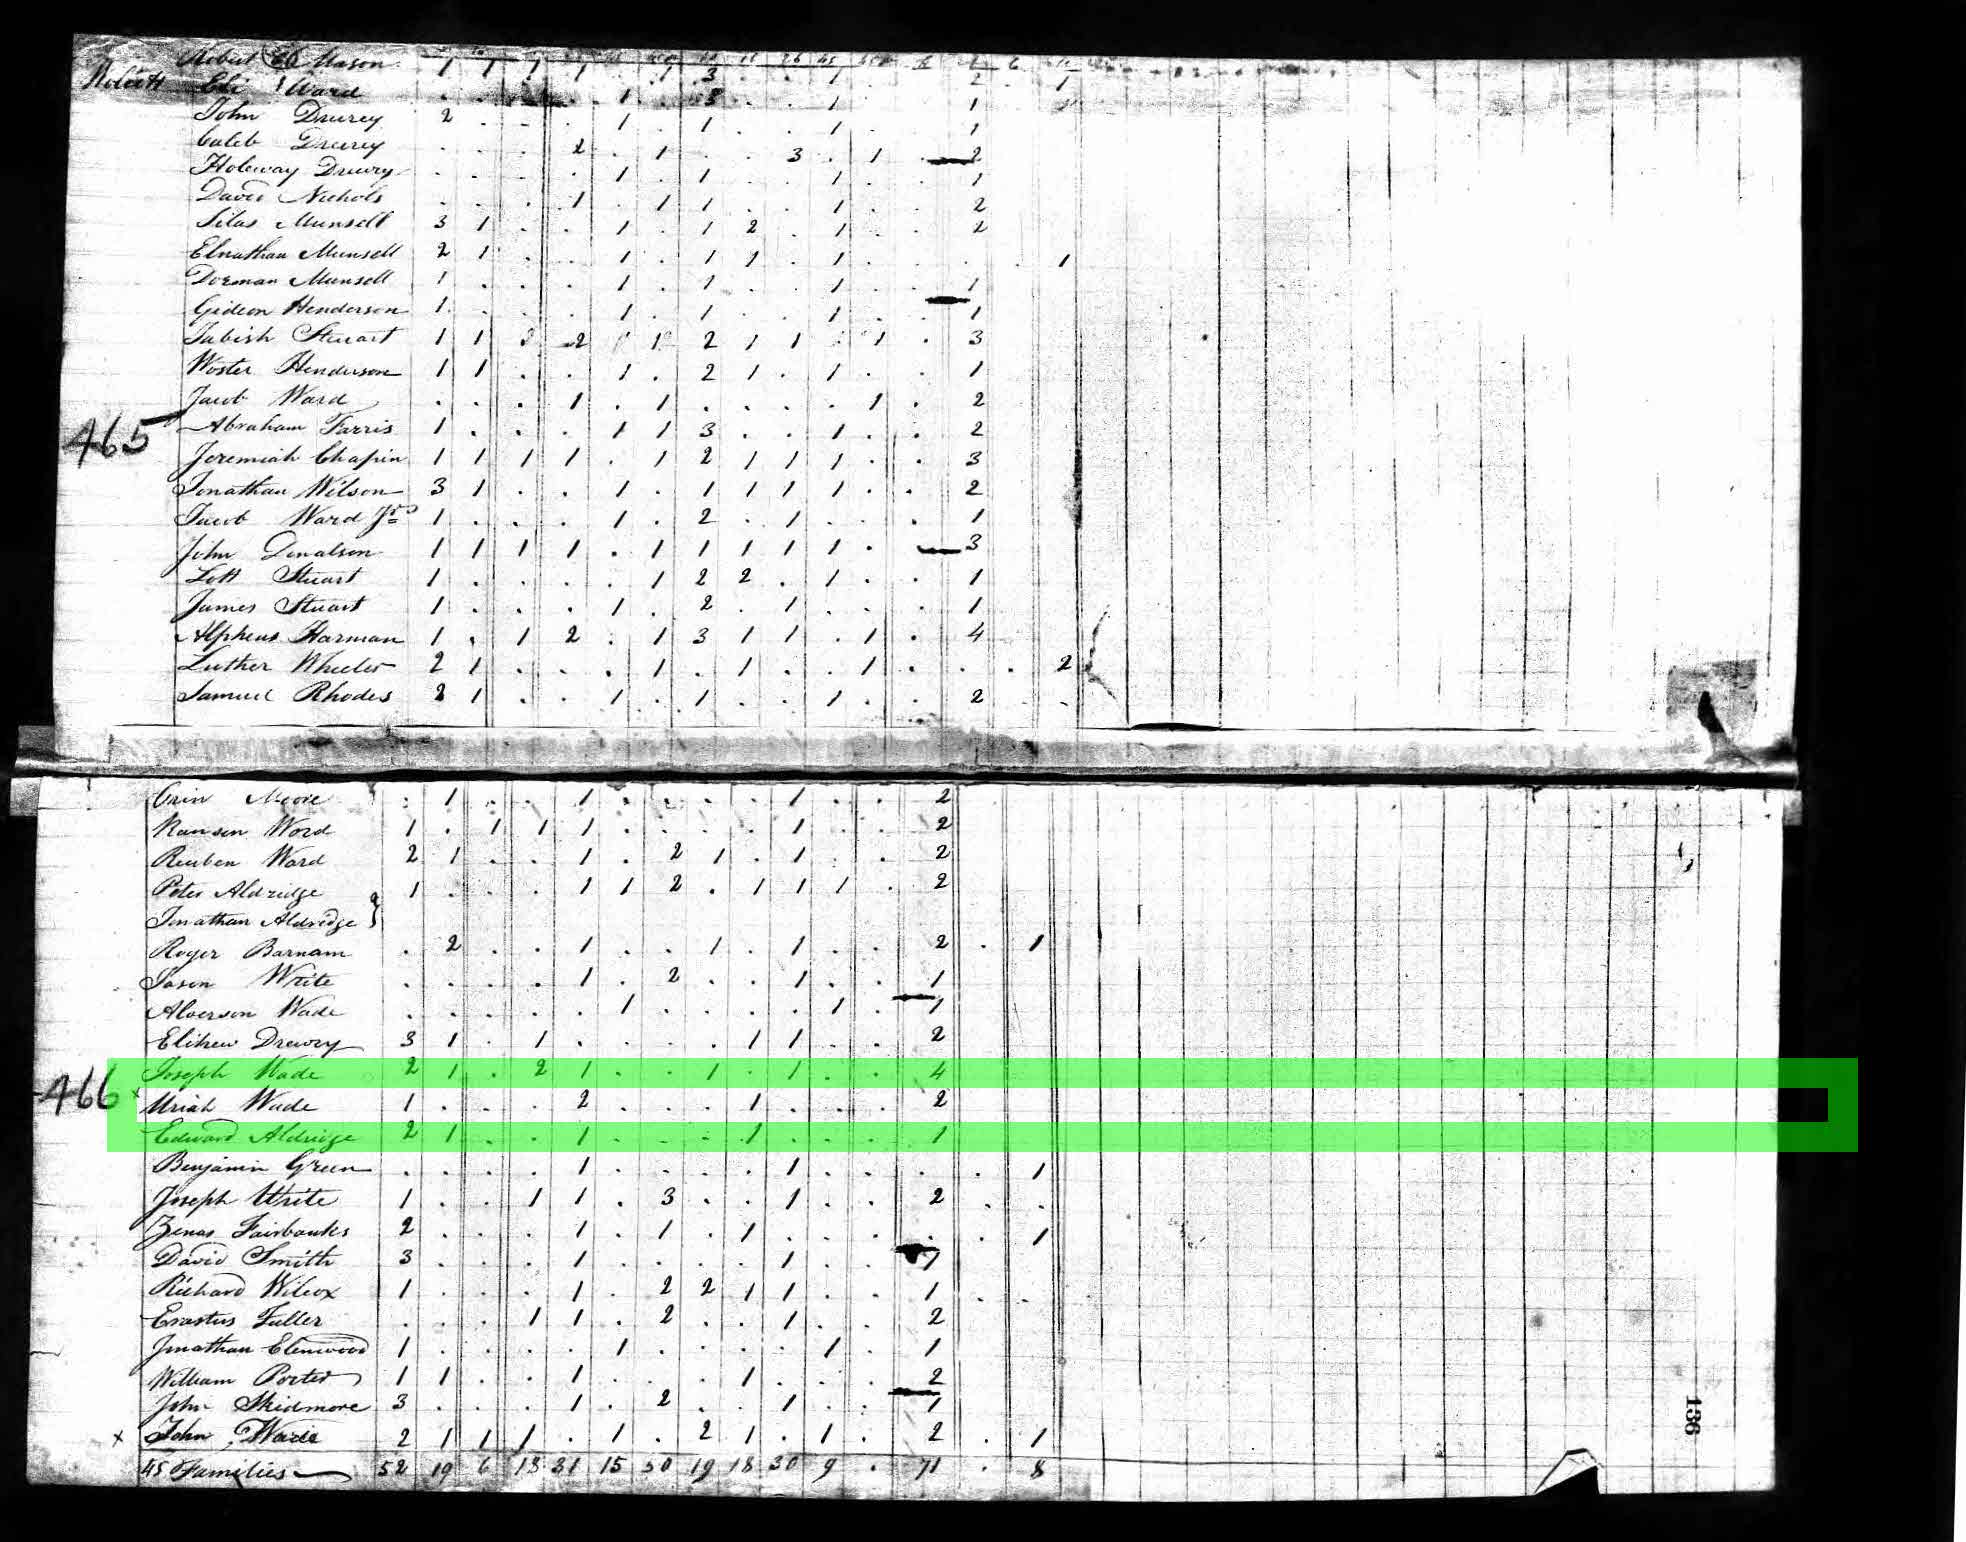 Robert Mason 1 1 1 1 . 1 3 . . 1 . . 2 . 1
Eli Ward . . . . 1 . 3 . . 1 . . 1
John Drurey 2 . . . 1 . 1 . . 1 . . 1
Caleb Drurey . . . 2 . 1 . . 3 . 1 . 2
Holoway Drurey . . . . 1 . 1 . . 1 . . 1
David Nichols . . . 1 . 1 1 . . 1 . . 2
Silas Munsell 3 1 . . 1 . 1 2 . 1 . . 2
Elnathan Munsell 2 1 . . 1 . 1 1 . 1 . . . . 1
Dorman Munsell 1 . . . 1 . 1 . . 1 . . 1
Gideon Henderson 1 . . . 1 . 1 . . 1 . . 1
Tabish Stuart 1 1 2 1 2 1 1 . 1 . 3
Woster Henderson 1 1 . . 1 . 2 1 . 1 . . 1
Jacob Ward . . . 1 . 1 . . . . 1 . 2
465 Abraham Farris 1 . . . 1 1 3 . . 1 . . 2
Jeremiah Chapin 1 1 1 1 . 1 2 1 1 1 . . 3
Jonathan Wilson 3 1 . . 1 . 1 1 1 1 . . 2
Jacob Ward Jr 1 . . . 1 . 2 . 1 . . . 1
John Donalson 1 1 1 1 . 1 1 1 1 1 . 3
Lott Stuart 1 . . . . 1 2 2 . 1 . . 1
James Stuart 1 . . . 1 . 2 . 1 . . . 1
Alpheus Harman 1 . 1 2 . 1 3 1 1 . 1 . 4
Luther Wheeler 2 1 . . . 1 . 1 . . 1 . . . 2
Samuel Rhodes 2 1 . . 1 . 1 . . 1 . . 2 . .
Orin Moore . 1 . . 1 . . . . 1 . . 2
Ransen Word 1 . 1 1 1 . . . . 1 . . 2
Reuben Ward 2 1 . . 1 . 2 1 . 1 . . 2
Peter Aldridge 1 . . . 1 1 2 . 1 1 1 . 2
Jonathan Aldridge }
Roger Barnam . 2 . . 1 . . 1 . 1 . . 2 . 1
Jason Write . . . . 1 . 2 . . 1 . . 1
Alverson Wade . . . . . 1 . . . . 1 . 1
Elihew Drewry 3 1 . 1 . . . . 1 1 . . 2
Joseph Wade 2 1 . 2 1 . . 1 . 1 . . 4
466 x Uriah Wade 1 . . . 2 . . . 1 . . . 2
Edward Aldridge 2 1 . . 1 . . . 1 . . . 1
Benjamin Green . . . . 1 . . . . 1 . . . . 1
Joseph Write 1 . . 1 1 . 3 . . 1 . . 2 . .
Zenas Fairbanks 2 . . . 1 . 1 . 1 . . . . . 1
David Smith 3 . . . 1 . . . . 1 . . 1
Richard Wilcox 1 . . . 1 . 2 2 1 1 . . 1 . .
Erastus Fuller . . . 1 1 . 2 . . 1 . . 2
Jonathan Elenwood 1 . . . . 1 . . . . 1 . 1
William Porter 1 1 . . 1 . . . 1 . . . 2
John Skidmore 3 . . . 1 . 2 . . 1 . . 1
x John Wade 2 1 1 1 . 1 . 2 1 . 1 . 2 . 1
136
45 Families 52 19 6 13 31 15 50 19 18 30 9 . 71 . 8